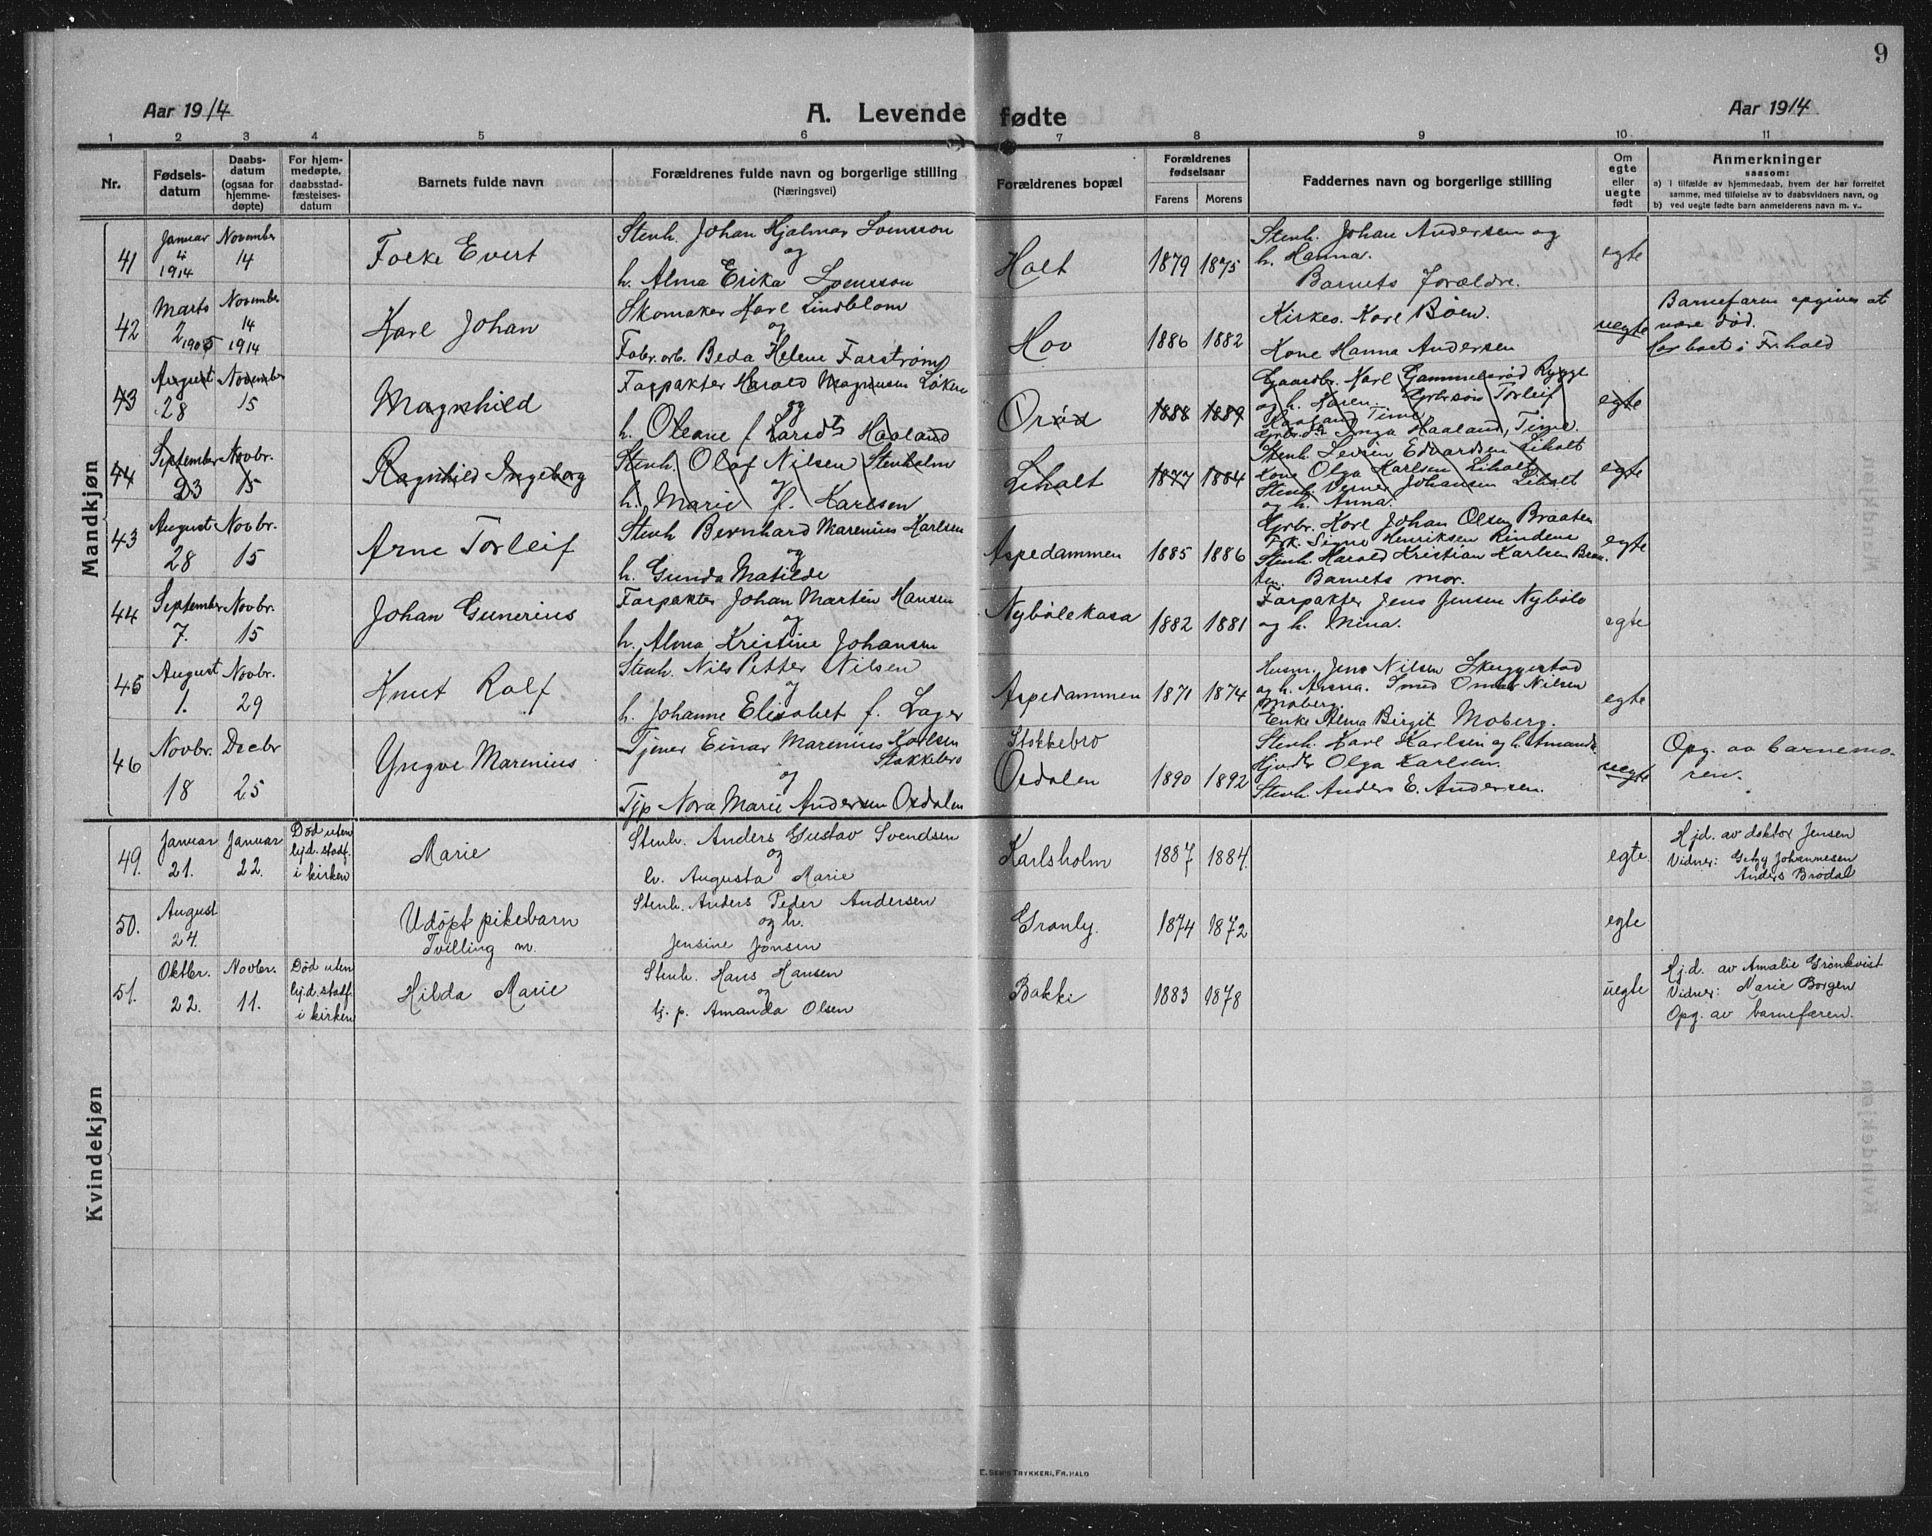 9
Aar 1914
A. Levende fødte
Aar 1914
1 2 3 4 5 6 7 8 9 10 11
Nr.
Fødsels-
datum
Daabs-
datum
(ogsaa for
hjemme-
døpte)
For hjem-
medøpte,
daabsstad-
fæstelses-
datum
Barnets fulde navn
Forældrenes fulde navn og borgerlige stilling
(Næringsvei)
Forældrenes bopæl
Forældrenes
fødselsaar
Farens Morens
Faddernes navn og borgerlige stilling
Om
egte
eller
uegte
født
Anmerkninger
saasom:
a) i tilfælde av hjemmedaab, hvem der har forrettet
samme, med tilføielse av to daabsvidners navn, og
b) ved uegte fødte barn anmelderens navn m. v..
Mandkjøn
41
Januar
4
1914
November
14
Folke Evert
Stenh. Johan Hjalmar Svensson
og
h. Alma Erika Svensson
Holt
1879 1875
Stenh. Johan Andersen og
h. Hanna.
Barnets Forældre.
egte
42
Marts
2 1905
November
14
1914
Karl Johan
Skomaker Karl Lindblom
og
Fabr.arb. Beda Helene Farström
Hov
1886 1882
Kirkes. Karl Böen
Kone Hanna Andersen
uegte
Barnefaren opgives at
være død.
Har boet i Fr.hald
43
August
28
November
15
Magnhild
Forpakter Harald Magnusen Løken
og
h. Oleane f. Larsdt Haaland
Orød
1888 1889
Gaardbr. Karl Gammelsrød Rygge
og h. Karen. Grbr.søn Torleif
Haaland Time
Grbr.dtr Inga Haaland, Time.
egte
44
September
23
Novbr.
15
Ragnhild Ingeborg
Stenh. Olaf Nilsen Stenholm
og
h. Marie f. Karlsen
Liholt
1877 1884
Stenh. Levien Edvardsen Liholt
Kone Olga Karlsen Liholt
Stenh. Verner Johansen Liholt
og h. Anna.
egte
43
August
28
Novbr.
15
Arne Torleif
Stenh Bernhard Marenius Karlsen
og
h. Gunda Matilde
Aspedammen
1885 1886
Grbr. Karl Johan Olsen Braaten
Frk. Signe Henriksen Rindene
Stenh. Harald Kristian Karlsen Braa-
ten. Barnets mor.
egte
44
September
7.
Novbr.
15
Johan Gunerius
Forpakter Johan Martin Hansen
og
h. Alma Kristine Johansen
Nybølekasa
1882 1881
Forpakter Jens Jensen Nybøle
og h. Mina.
egte
45
August
1.
Novbr.
29
Knut Rolf
Stenh. Nils Petter Nilsen
og
h. Johanne Elisabet f. Lager
Aspedammen
1871 1874
Husm. Jens Nilsen Skuggestad
og h. Anna. Smed Nilsen
Moberg.
Enke Alma Birgit Moberg.
egte
46
Novbr.
18
Decbr
25
Yngve Marenius
Tjener Einar Marenius Karlsen
Stokkebro
og
Tjp Nora Marie Andersen Osdalen
Stokkebro
Osdalen
1890 1892
Stenh. Karl Karlsen og h. Amanda
Olga Karlsen.
Stenh. Anders E. Andersen.
uegte
Opg. av barnemo-
ren.
Kvindekjøn
49.
Januar
21.
Januar
22.
Død uten
hj.d. stadf.
i kirken
Marie
Stenh. Anders Gustav Svendsen
og
h. Augusta Marie
Karlsholm
1887 1884
egte
Hj.d. av doktor Jensen
Vidner: Getzy Johannesen
Anders Brødal
50.
August
24.
Udøpt pikebarn
Tvilling m.
Stenh. Anders Peder Andersen
og h.
Jensine Jonsen
Granly.
1874 1872
egte
51.
Oktbr.
22.
Novbr.
11.
Død uten
hj.d. stadf.
i kirken
Hilda Marie
Stenh. Hans Hansen
og
tj. p. Amanda Olsen
Bakke
1883 1878
uegte
Hj.d. av Amalie Grønkvist
Vidner: Marie Borgen
Opg. av barnefaren.
E. SEM'S TRYKKERI, FR.HALD